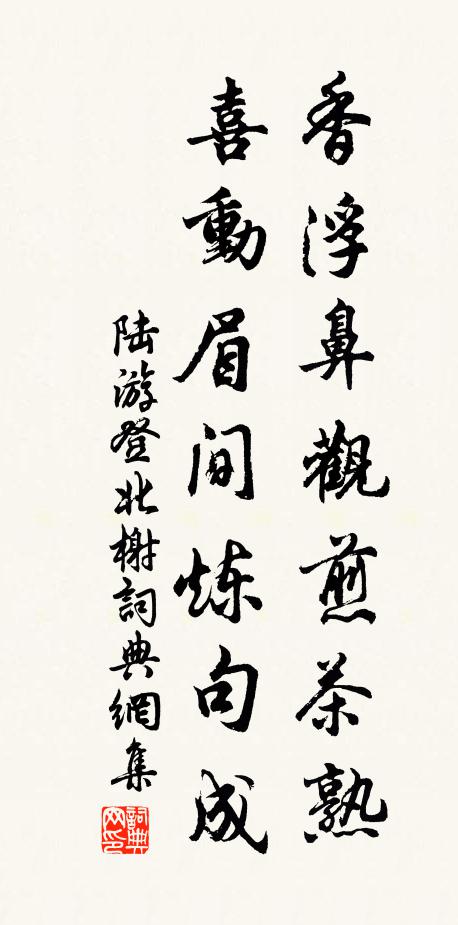 香浮鼻觀煎茶熟
喜動眉間炼句成
陆游登北榭詞典網集
詞典
网印